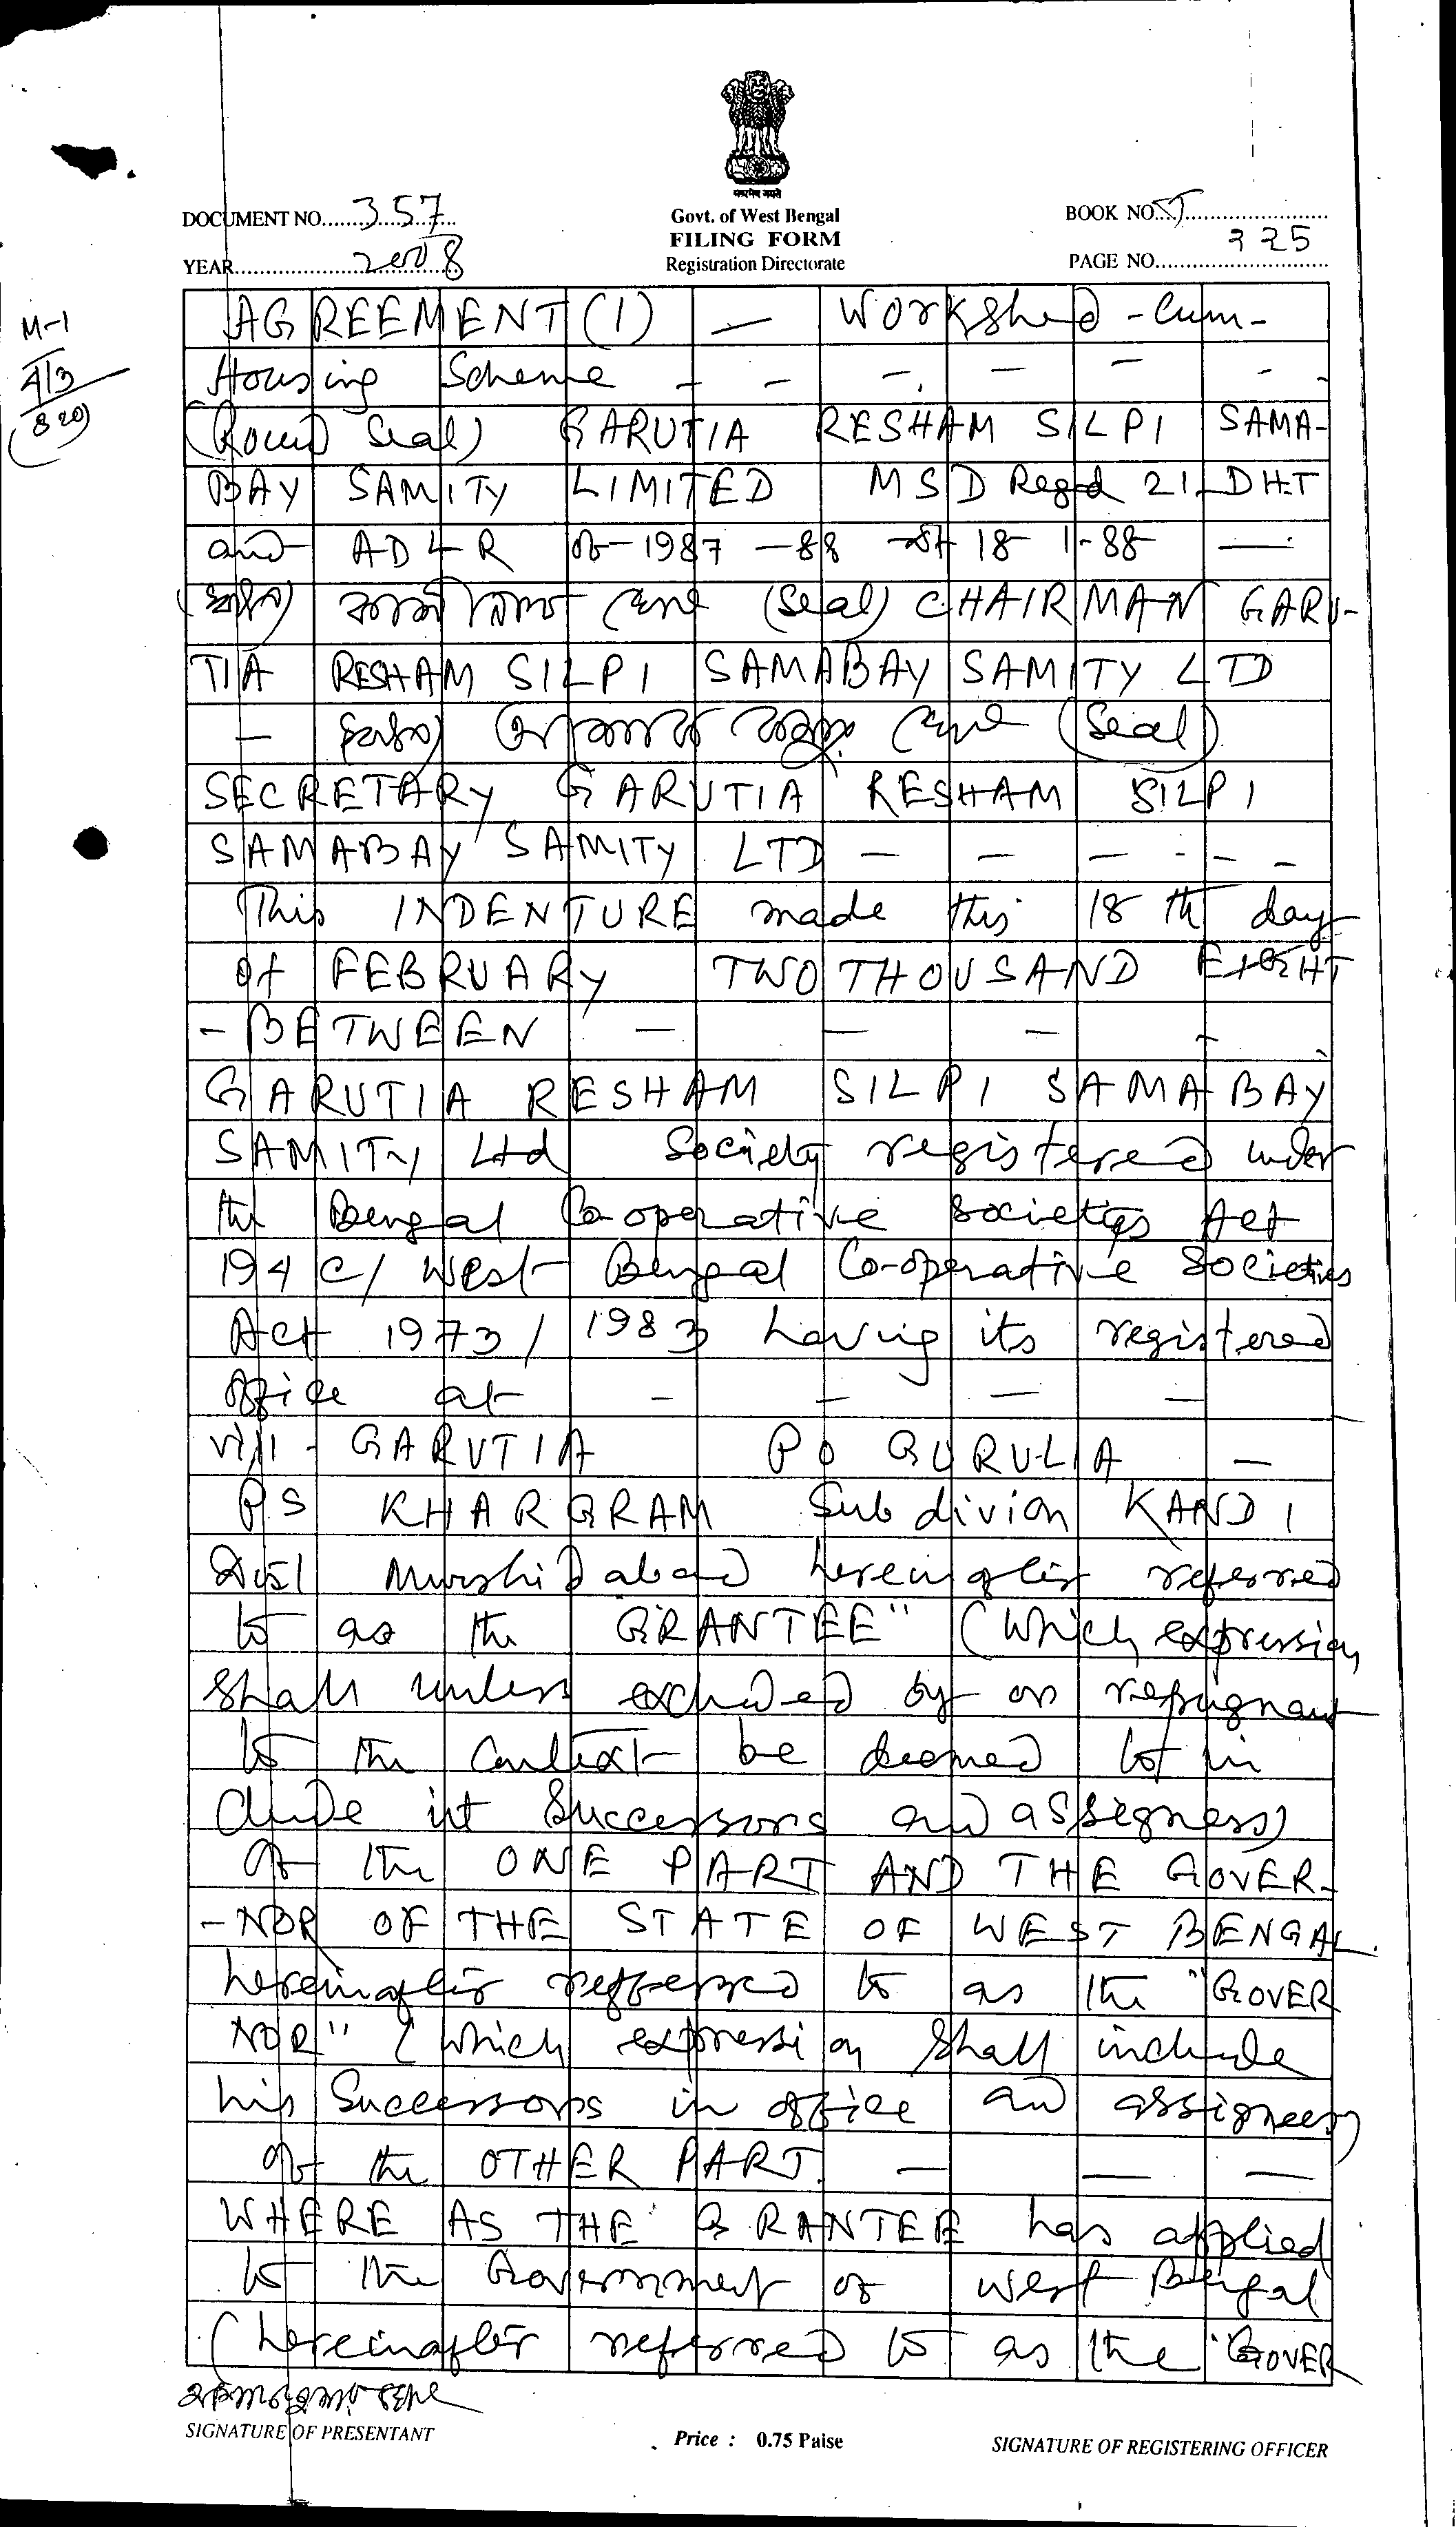 सत्यमेव जयते
DOCUMENT NO. 357
Govt. of West Bengal
BOOK NO. I
FILING FORM
YEAR 2008
Registration Directorate
PAGE NO. 225
M-1
4/3
(820)
AGREEMENT (1) — Workshed - Cum -
Housing Scheme - - - - - - -
(Round Seal) GARUTIA RESHAM SILPI SAMA-
BAY SAMITY LIMITED MSD Regd 21-DHT
and ADLR of - 1987 - 88 dt 18-11-88 —
(স্বাঃ) সেখ (Seal) CHAIRMAN GARU-
TIA RESHAM SILPI SAMABAY SAMITY LTD
— সেখ (Seal)
SECRETARY GARUTIA RESHAM SILPI
SAMABAY SAMITY LTD — — — - - -
This INDENTURE made this 18 th day
of FEBRUARY TWO THOUSAND EIGHT
- BETWEEN — — — -
GARUTIA RESHAM SILPI SAMABAY
SAMITY Ltd Society registered under
the Bengal Co-operative Societys Act
194 C/ West Bengal Co-operative Societies
Act 1973/1983 having its registered
office at - - — -
vill - GARUTIA PO GURULIA —
P.S KHARGRAM Sub divion KANDI
Dist Murshidabad hereinafter referred
to as the GRANTEE" (Which expression
shall unless excluded by or repugnant
to the Context be deemed to in
clude it Successors and assigness)
of the ONE PART AND THE GOVER-
-NOR OF THE STATE OF WEST BENGAL.
hereinafter refferred to as the "GOVER
NOR" (which expression shall include
his Successors in office and assignees)
of the OTHER PART. — — —
WHERE AS THE GRANTEE has applied
to the Government of West Bengal
(hereinafter referred to as the "GOVER
SIGNATURE OF PRESENTANT
Price : 0.75 Paise
SIGNATURE OF REGISTERING OFFICER